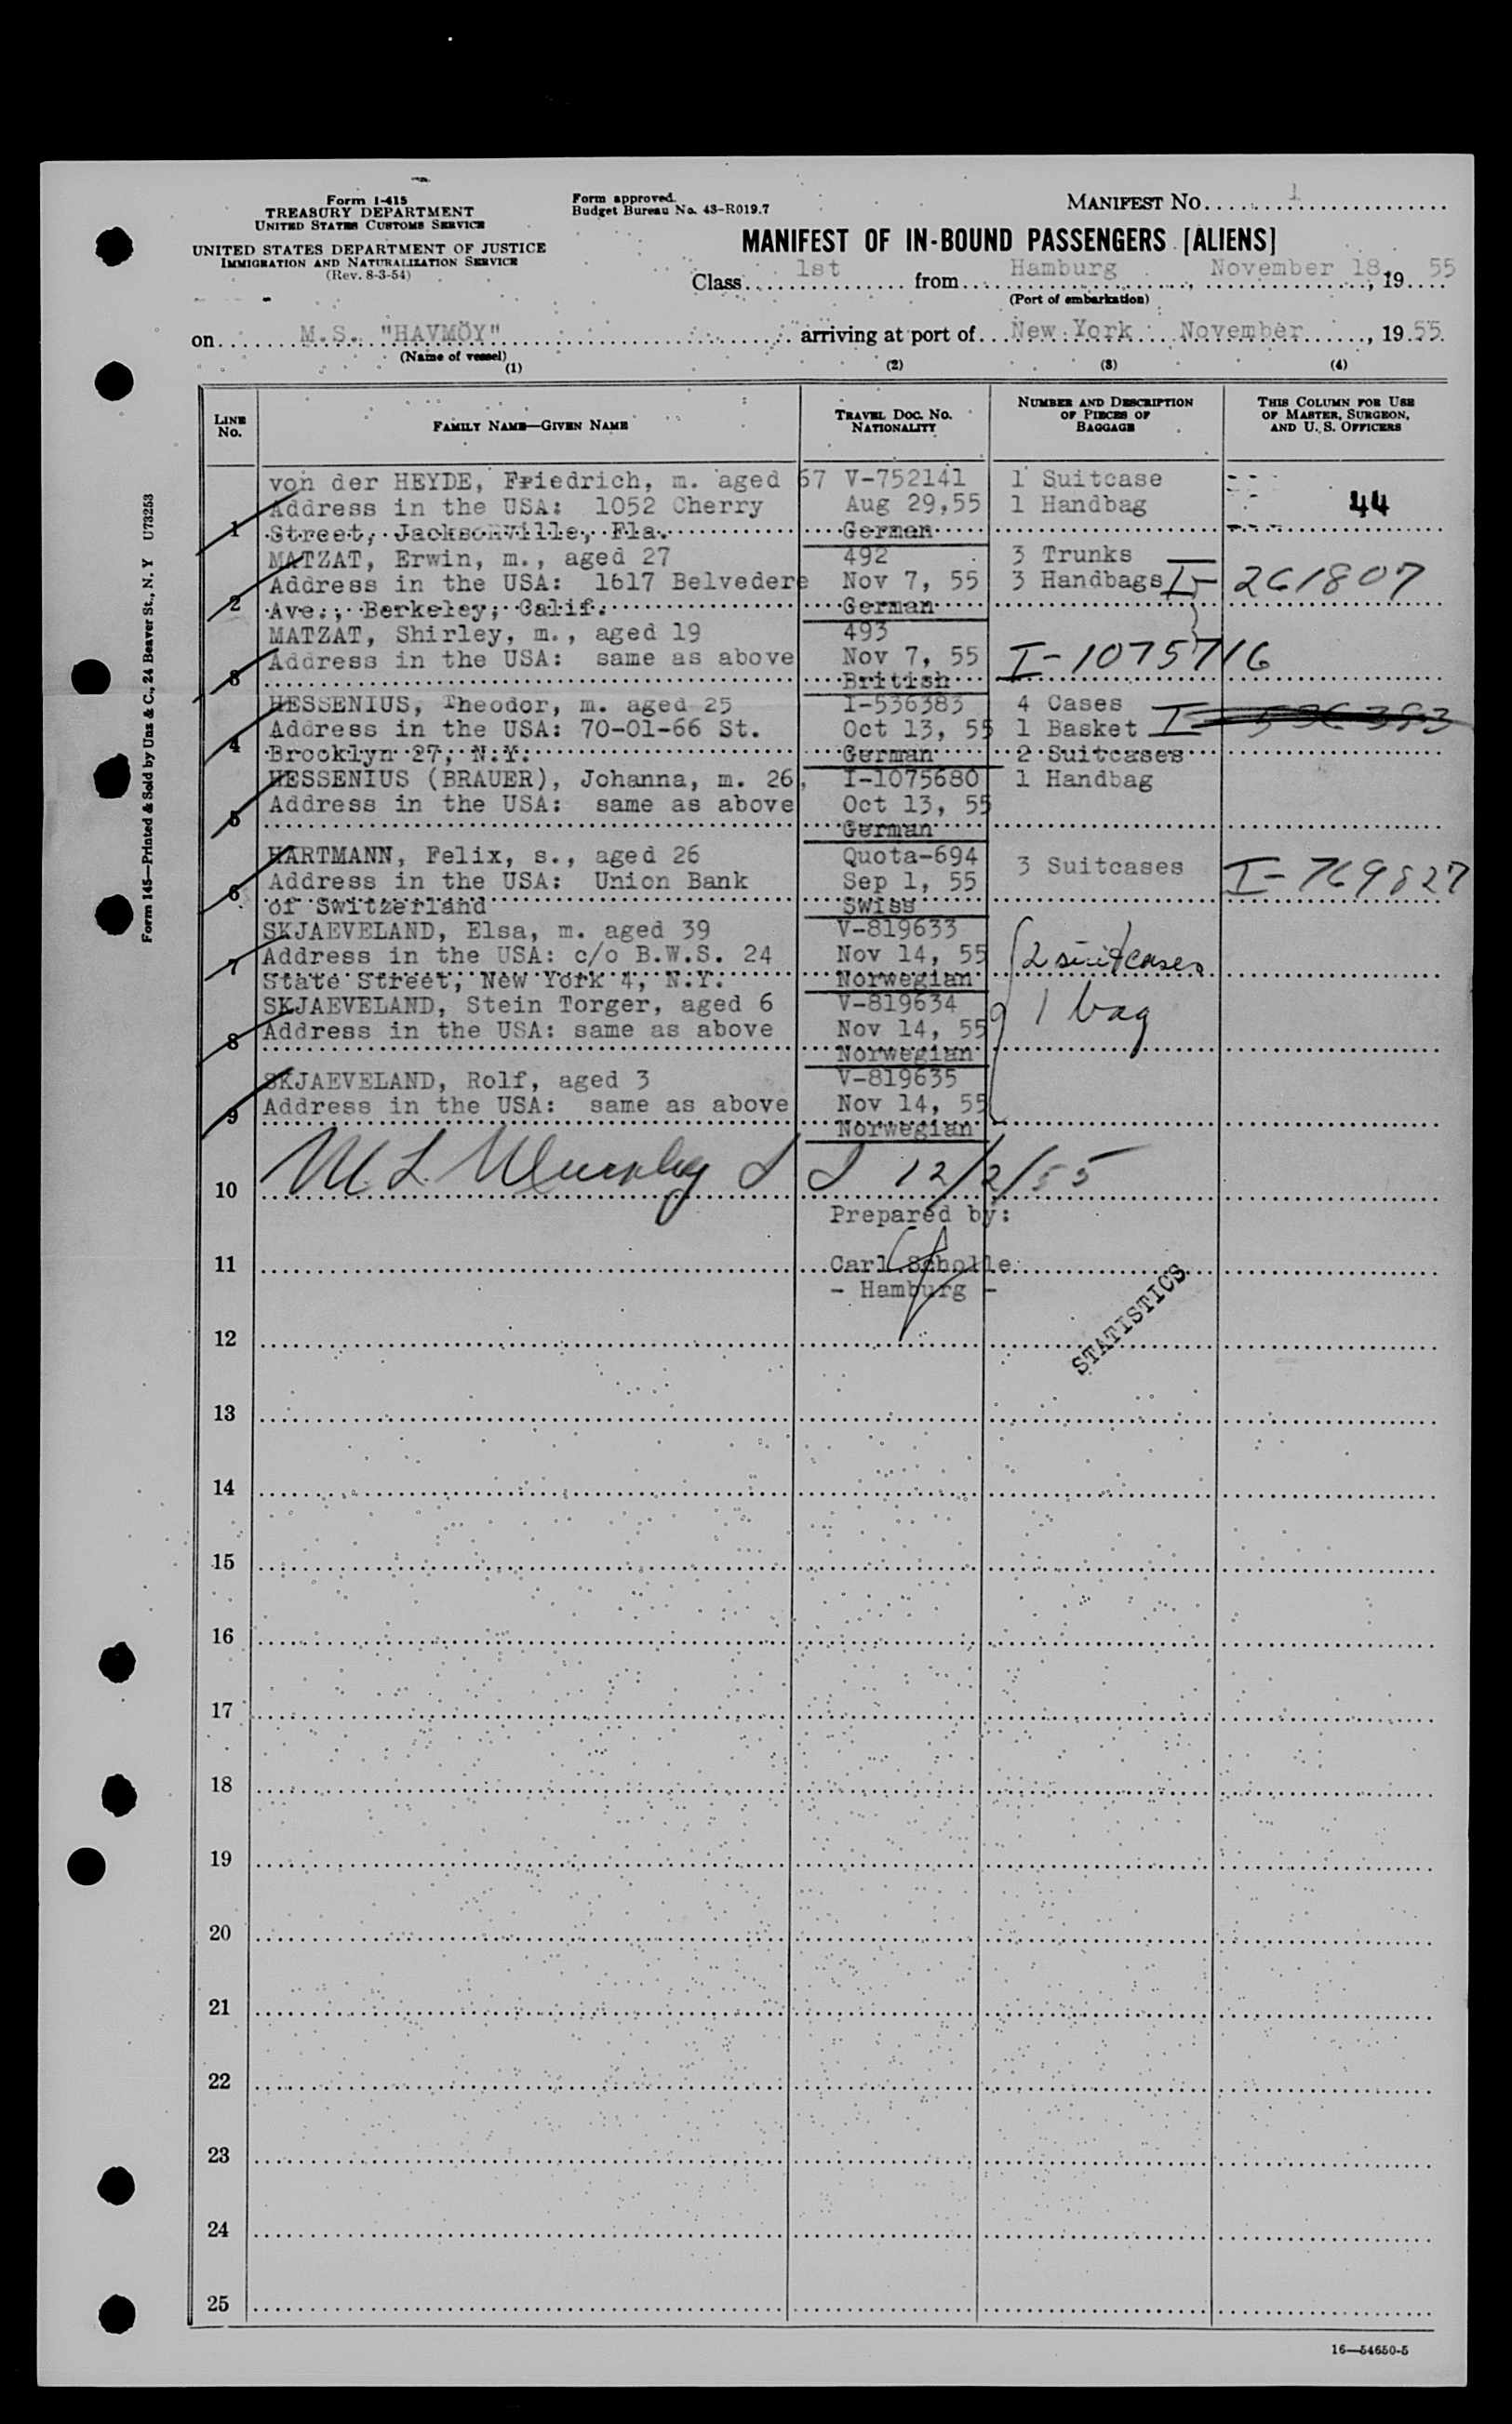 Form I-415
TREASURY DEPARTMENT
UNITED STATES CUSTOMS SERVICE
UNITED STATES DEPARTMENT OF JUSTICE
IMMIGRATION AND NATURALIZATION SERVICE
(Rev. 8-3-54)
Form approved.
Budget Bureau No. 43-R019.7
MANIFEST NO. 1
MANIFEST OF IN-BOUND PASSENGERS [ALIENS]
Class 1st from Hamburg, November 18, 1955
(Port of embarkation)
on M.S. "HAVMÖY" arriving at port of New York November, 1955
(Name of vessel)
(1) (2) (3) (4)
LINE NO.
FAMILY NAME—GIVEN NAME
TRAVEL DOC. NO. NATIONALITY
NUMBER AND DESCRIPTION OF PIECES OF BAGGAGE
THIS COLUMN FOR USE OF MASTER, SURGEON, AND U. S. OFFICERS
von der HEYDE, Friedrich, m. aged 67 V-752141 1 Suitcase
Address in the USA: 1052 Cherry Aug 29,55 1 Handbag 44
1 Street, Jacksonville, Fla. German
MATZAT, Erwin, m., aged 27 492 3 Trunks
Address in the USA: 1617 Belvedere Nov 7, 55 3 Handbags I- 261807
2 Ave., Berkeley, Calif. German
MATZAT, Shirley, m., aged 19 493
Address in the USA: same as above Nov 7, 55 I-1075716
3 British
HESSENIUS, Theodor, m. aged 25 I-536383 4 Cases
Address in the USA: 70-01-66 St. Oct 13, 55 1 Basket I-536383
4 Brooklyn 27, N.Y. German 2 Suitcases
HESSENIUS (BRAUER), Johanna, m. 26, I-1075680 1 Handbag
Address in the USA: same as above Oct 13, 55
5 German
HARTMANN, Felix, s., aged 26 Quota-694 3 Suitcases
Address in the USA: Union Bank Sep 1, 55 I-769827
6 of Switzerland Swiss
SKJAEVELAND, Elsa, m. aged 39 V-819633
Address in the USA: c/o B.W.S. 24 Nov 14, 55 2 suitcases
7 State Street, New York 4, N.Y. Norwegian
SKJAEVELAND, Stein Torger, aged 6 V-819634 1 bag
Address in the USA: same as above Nov 14, 55
8 Norwegian
SKJAEVELAND, Rolf, aged 3 V-819635
Address in the USA: same as above Nov 14, 55
9 Norwegian
M L Murphy 12/2/55
10
Prepared by:
11 Carl Scholle
- Hamburg -
STATISTICS
12
13
14
15
16
17
18
19
20
21
22
23
24
25
16—54650-5
Form 145—Printed & Sold by Unz & C., 24 Beaver St., N. Y U73253